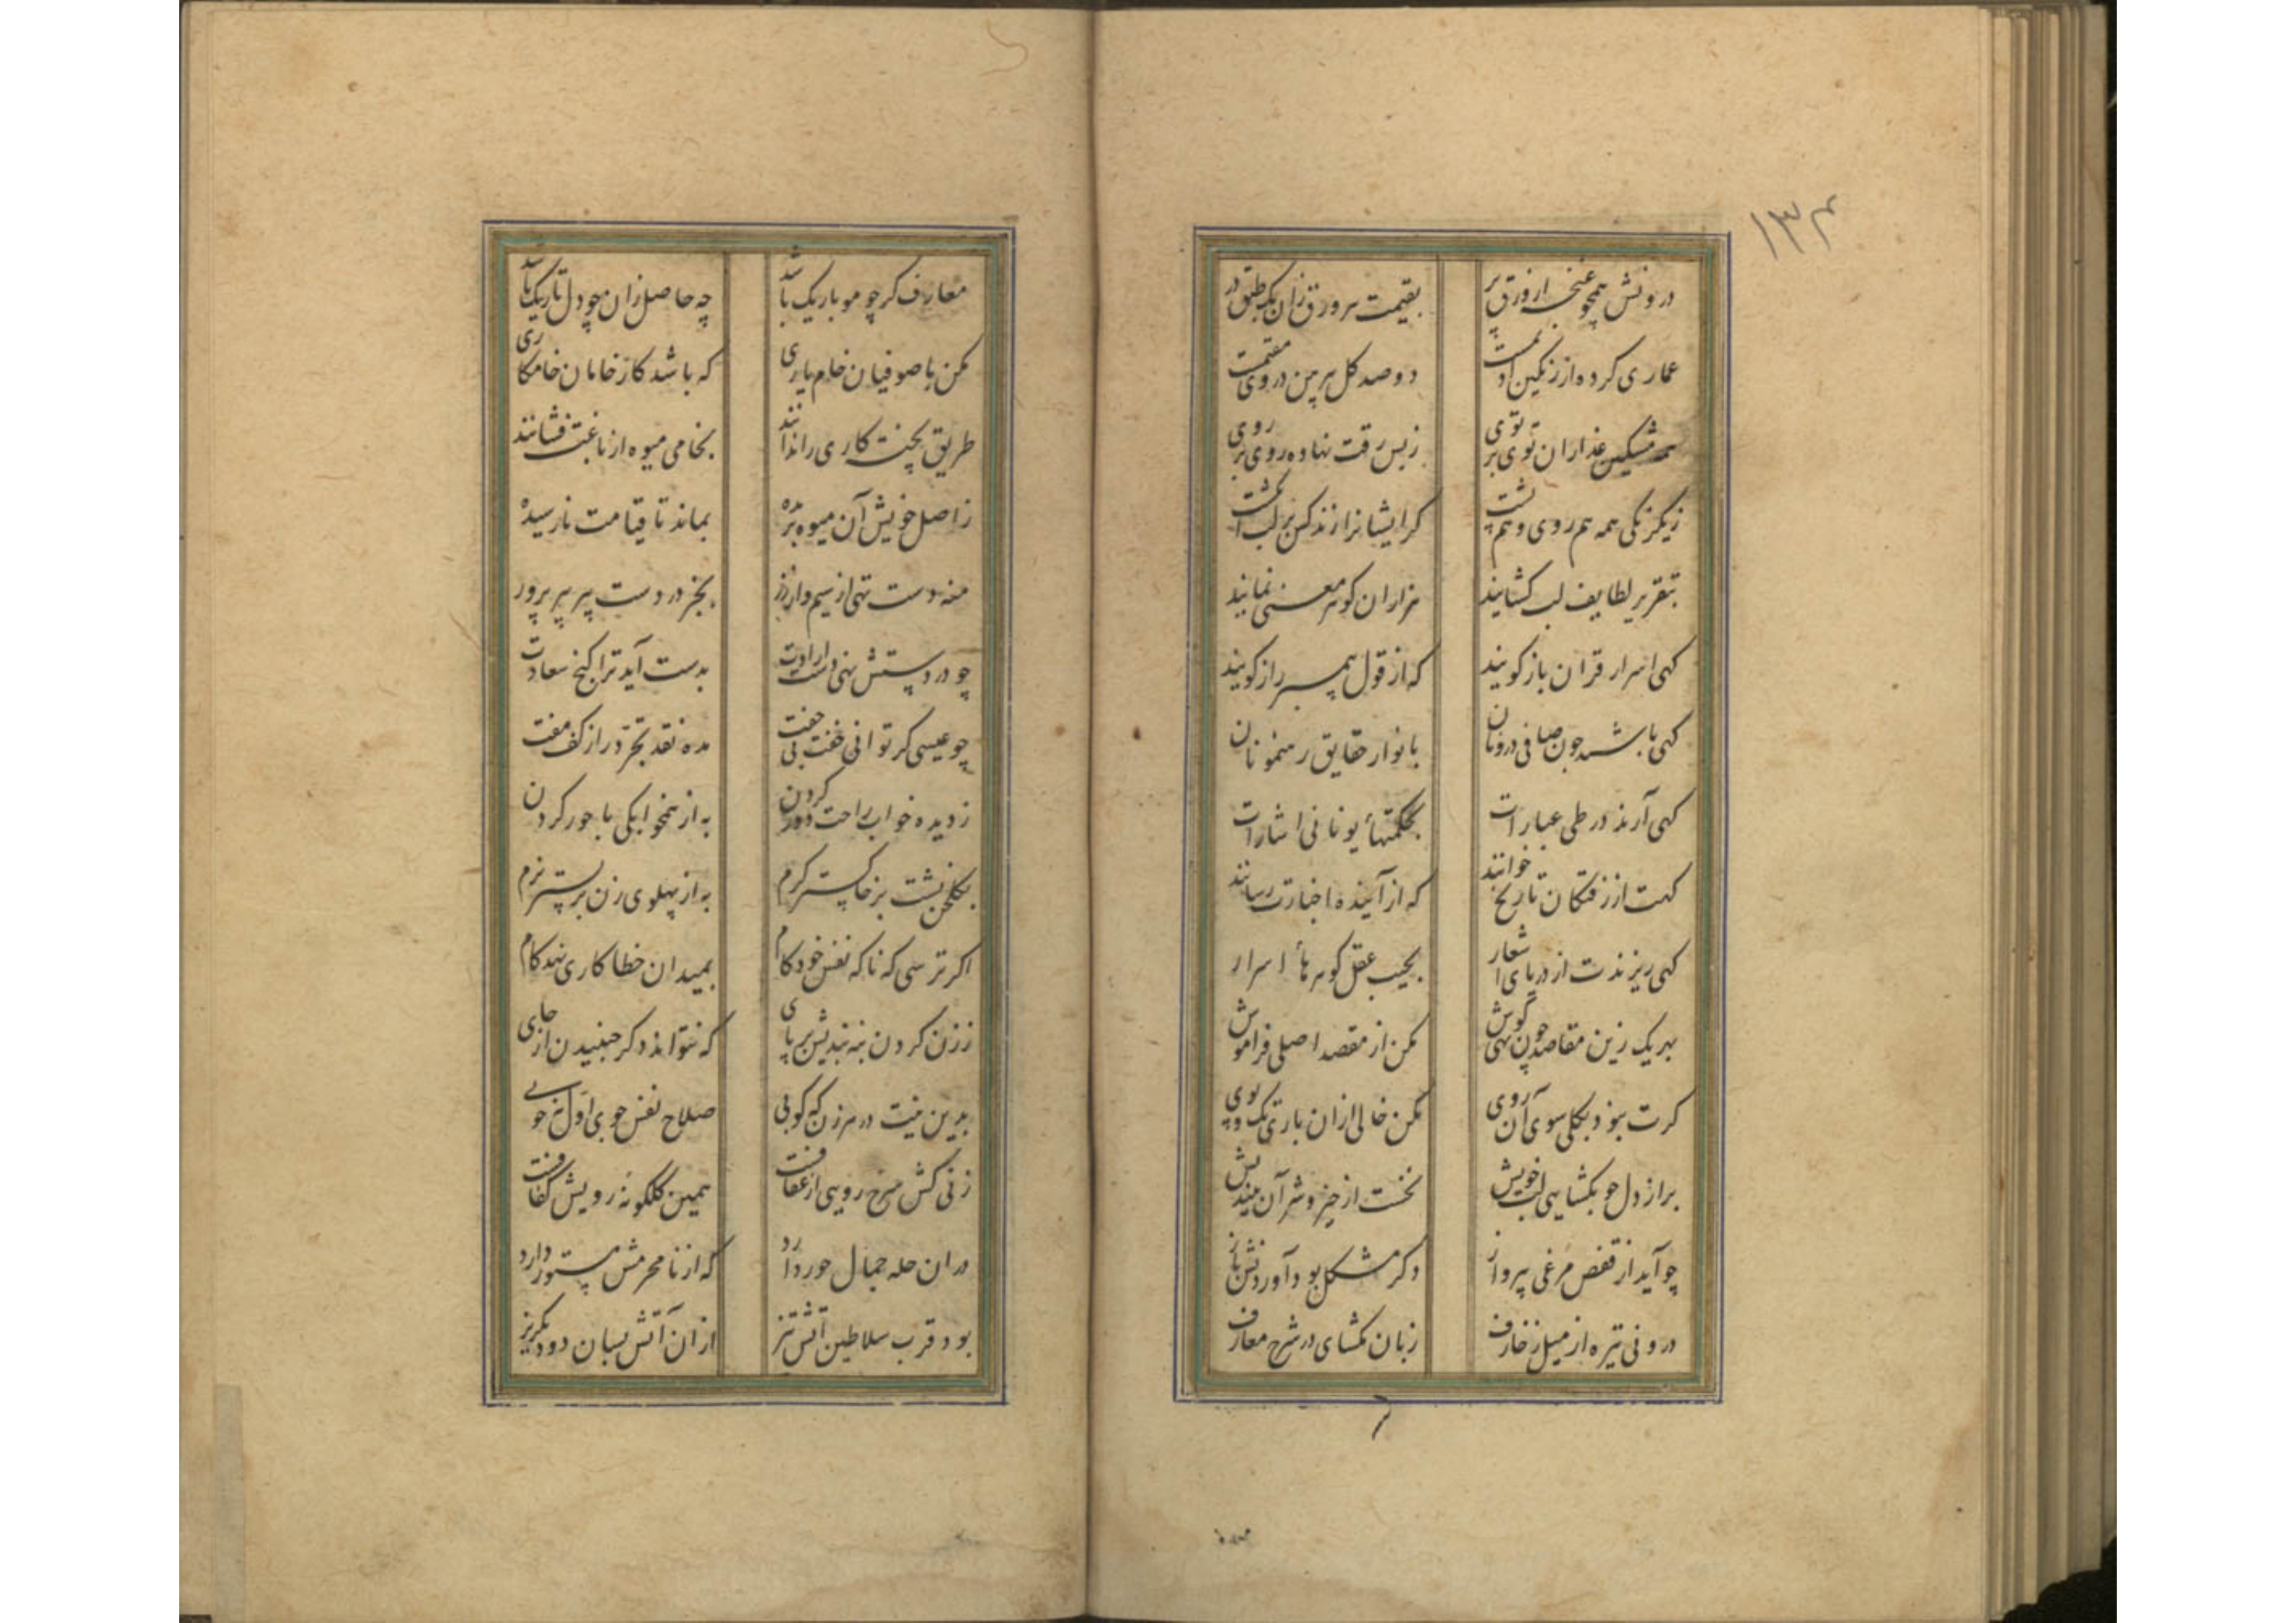 ۱۳۴
درونش همچو غنچه از ورق پر بقیمت هر ورق زان یک طبق در
عماری کرده از رنگین ادیمست دو صد گل پیرهن در وی مقیمست
همه مشکین عذاران توی بر توی زبس رقت نهاده روی بر روی
زیکرنگی همه هم روی و هم پشت گر ایشانرا زند کس بر لب انگشت
بتقریر لطایف لب گشایند هزاران گوهر معنی نمایند
گهی اسرار قران باز گویند گه از قول پیمبر راز گویند
گهی باشند چون صافی درونان بانوار حقایق رهنمونان
گهی آرند در طی عبارات بحکمتهای یونانی اشارات
گهت از رفتگان تاریخ خوانند گه از آینده اخبارت رسانند
گهی ریزندت از دریای اشعار بجیب عقل گوهرهاء اسرار
بهر یک زین مقاصد چون نهی گوش مکن از مقصد اصلی فراموش
گرت نبود بکلی سوی آن روی مکن خالی ازان باری تک و پوی
براز دل چو بگشایی لب خویش نخست از خیر و شر آن بیندیش
چو آید از قفص مرغی بپرواز دگر مشکل بود آوردنش باز
درونی تیره از میل زخارف زبان مگشای در شرح معارف
معارف گر چو مو باریک باشد چه حاصل زان چو دل تاریک باشد
مکن با صوفیان خام یاری که باشد کار خامان خامکاری
طریق پختکاری را ندانند بخامی میوه از باغت فشانند
ز اصل خویش آن میوه بریده بماند تا قیامت نارسیده
منه دست تهی از سیم و از زر بجز در دست پیر پیر پرور
چو در دستش نهی دست ارادت بدست آید ترا گنج سعادت
چو عیسی گر توانی خفت بی جفت مده نقد تجرد را ز کف مفت
ز دیده خواب راحت دور کردن به از همخوابگی با حور کردن
بگلخن پشت بر خاکستر گرم به از پهلوی زن بر بستر نرم
اگر ترسی که ناگه نفس خودکام بمیدان خطا کاری نهد گام
ز زن کردن بنه بندیش بر پای که نتواند دگر جنبیدن از جای
بدین نیت در هر زن که کوبی صلاح نفس جوی اول نه خوبی
زنی کش سرخ رویی از عفافست همین گلگونه رویش کفافست
دران حله جمال حور دارد که از نامحرمش مستور دارد
بود قرب سلاطین آتش تیز ازان آتش بسان دود بگریز